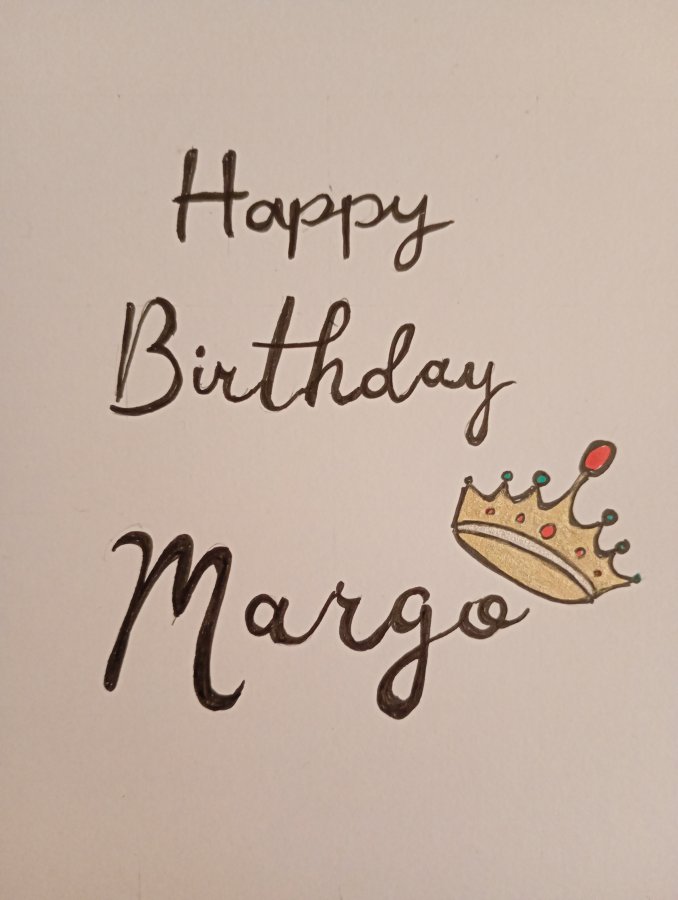 Happy
Birthday
Margo